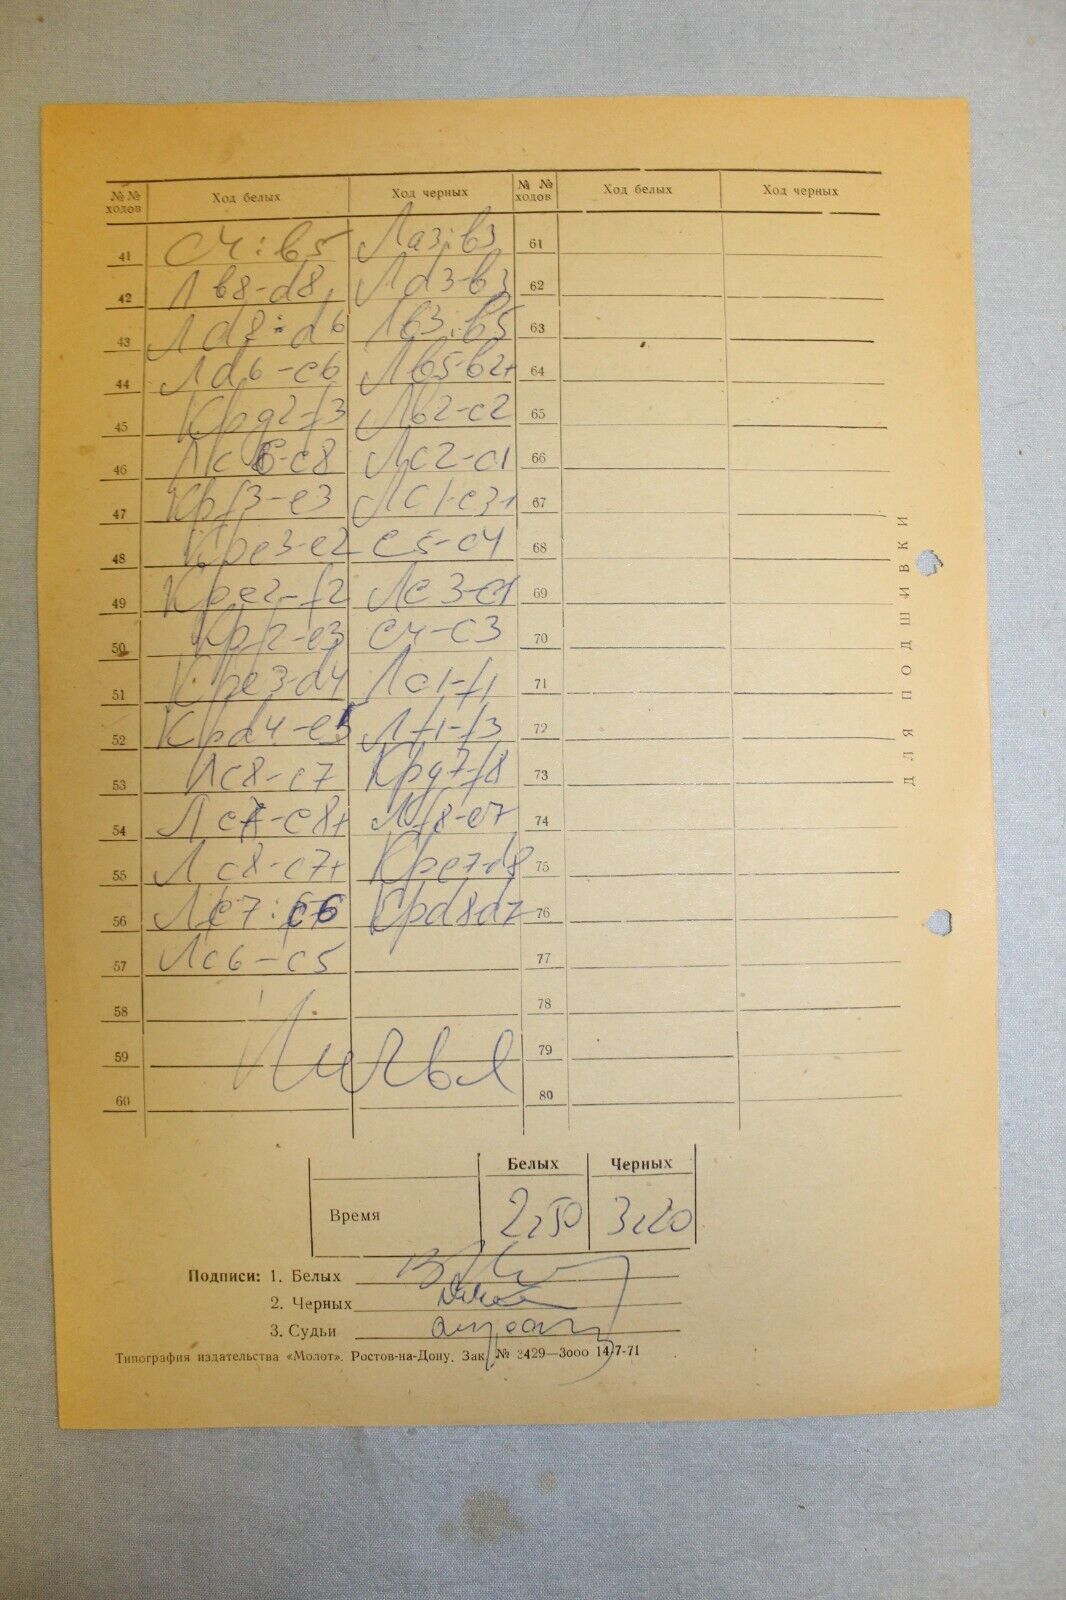 №№ ходов Ход белых Ход черных № № ходов Ход белых Ход черных
41 c4:b5 Лa3:b3 61
42 Лb8-d8 Лd3-b3 62
43 Лd8:d6 Лb3:b5 63
44 Лd6-c6 Лb5-b2+ 64
45 Крg2-f3 Лb2-c2 65
46 Лc6-c8 Лc2-c1 66
47 Крf3-e3 Лc1-c3+ 67
48 Крe3-e2 c5-c4 68
49 Крe2-f2 Лc3-c1 69
50 Крf2-e3 c4-c3 70
51 Крe3-d4 Лc1-f1 71
52 Крd4-e5 Лf1-f3 72
53 Лc8-c7 Крg7-f8 73
54 Лc7-c8+ f8-e7 74
55 Лc8-c7+ Крe7-d8 75
56 Лc7:c6 Крd8-d7 76
57 Лc6-c5 77
58 78
59 79
Ничья
60 80
ДЛЯ ПОДШИВКИ
Белых Черных
Время 2,50 3,20
Подписи: 1. Белых
2. Черных
3. Судьи
Типография издательства «Молот». Ростов-на-Дону. Зак. № 2429—3000 14-7-71